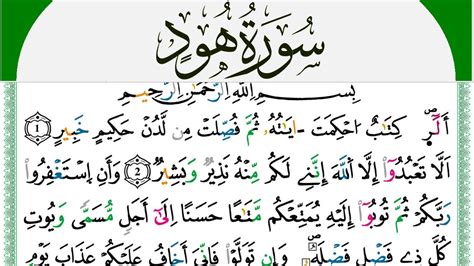 سُورَةُ هُودٍ
بِسْمِ اللَّهِ الرَّحْمَٰنِ الرَّحِيمِ
الٓر كِتَٰبٌ اُحْكِمَتَ اٰيَٰتُهُۥ ثُمَّ فُصِّلَتْ مِن لَّدُنْ حَكِيمٍ خَبِيرٍ 1
اَلَّا تَعْبُدُوٓاْ إِلَّا اَللَّهَ إِنَّنِے لَكُم مِّنْهُ نَذِيرٌ وَبَشِيرٌ 2 وَأَنِ اِسْتَغْفِرُواْ
رَبَّكُمْ ثُمَّ تُوبُوٓاْ إِلَيْهِ يُمَتِّعْكُم مَّتَٰعًا حَسَنًا إِلَىٰٓ أَجَلٍ مُّسَمًّى وَيُوتِ
كُلَّ ذِے فَضْلٍ فَضْلَهُۥ وَإِن تَوَلَّوْاْ فَإِنِّيَ أَخَافُ عَلَيْكُمْ عَذَابَ يَوْمٍ